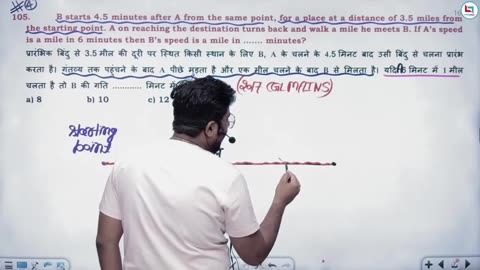 105. B starts 4.5 minutes after A from the same point, for a place at a distance of 3.5 miles from
the starting point. A on reaching the destination turns back and walk a mile he meets B. If A's speed
is a mile in 6 minutes then B's speed is a mile in ....... minutes?
प्रारंभिक बिंदु से 3.5 मील की दूरी पर स्थित किसी स्थान के लिए B, A के चलने के 4.5 मिनट बाद उसी बिंदु से चलना प्रारंभ
करता है। गंतव्य तक पहुंचने के बाद A पीछे मुड़ता है और एक मील चलने के बाद B से मिलता है। यदि A 6 मिनट में 1 मील
चलता है तो B की गति ............ मिनट में
(2017 CGL MAINS)
a) 8 b) 10 c) 12
starting
point